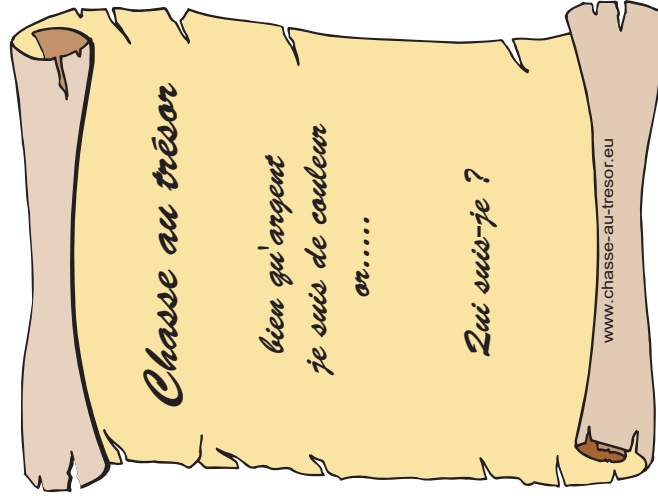 Chasse au trésor
bien qu'argent
je suis de couleur
or.....
Qui suis-je ?
www.chasse-au-tresor.eu